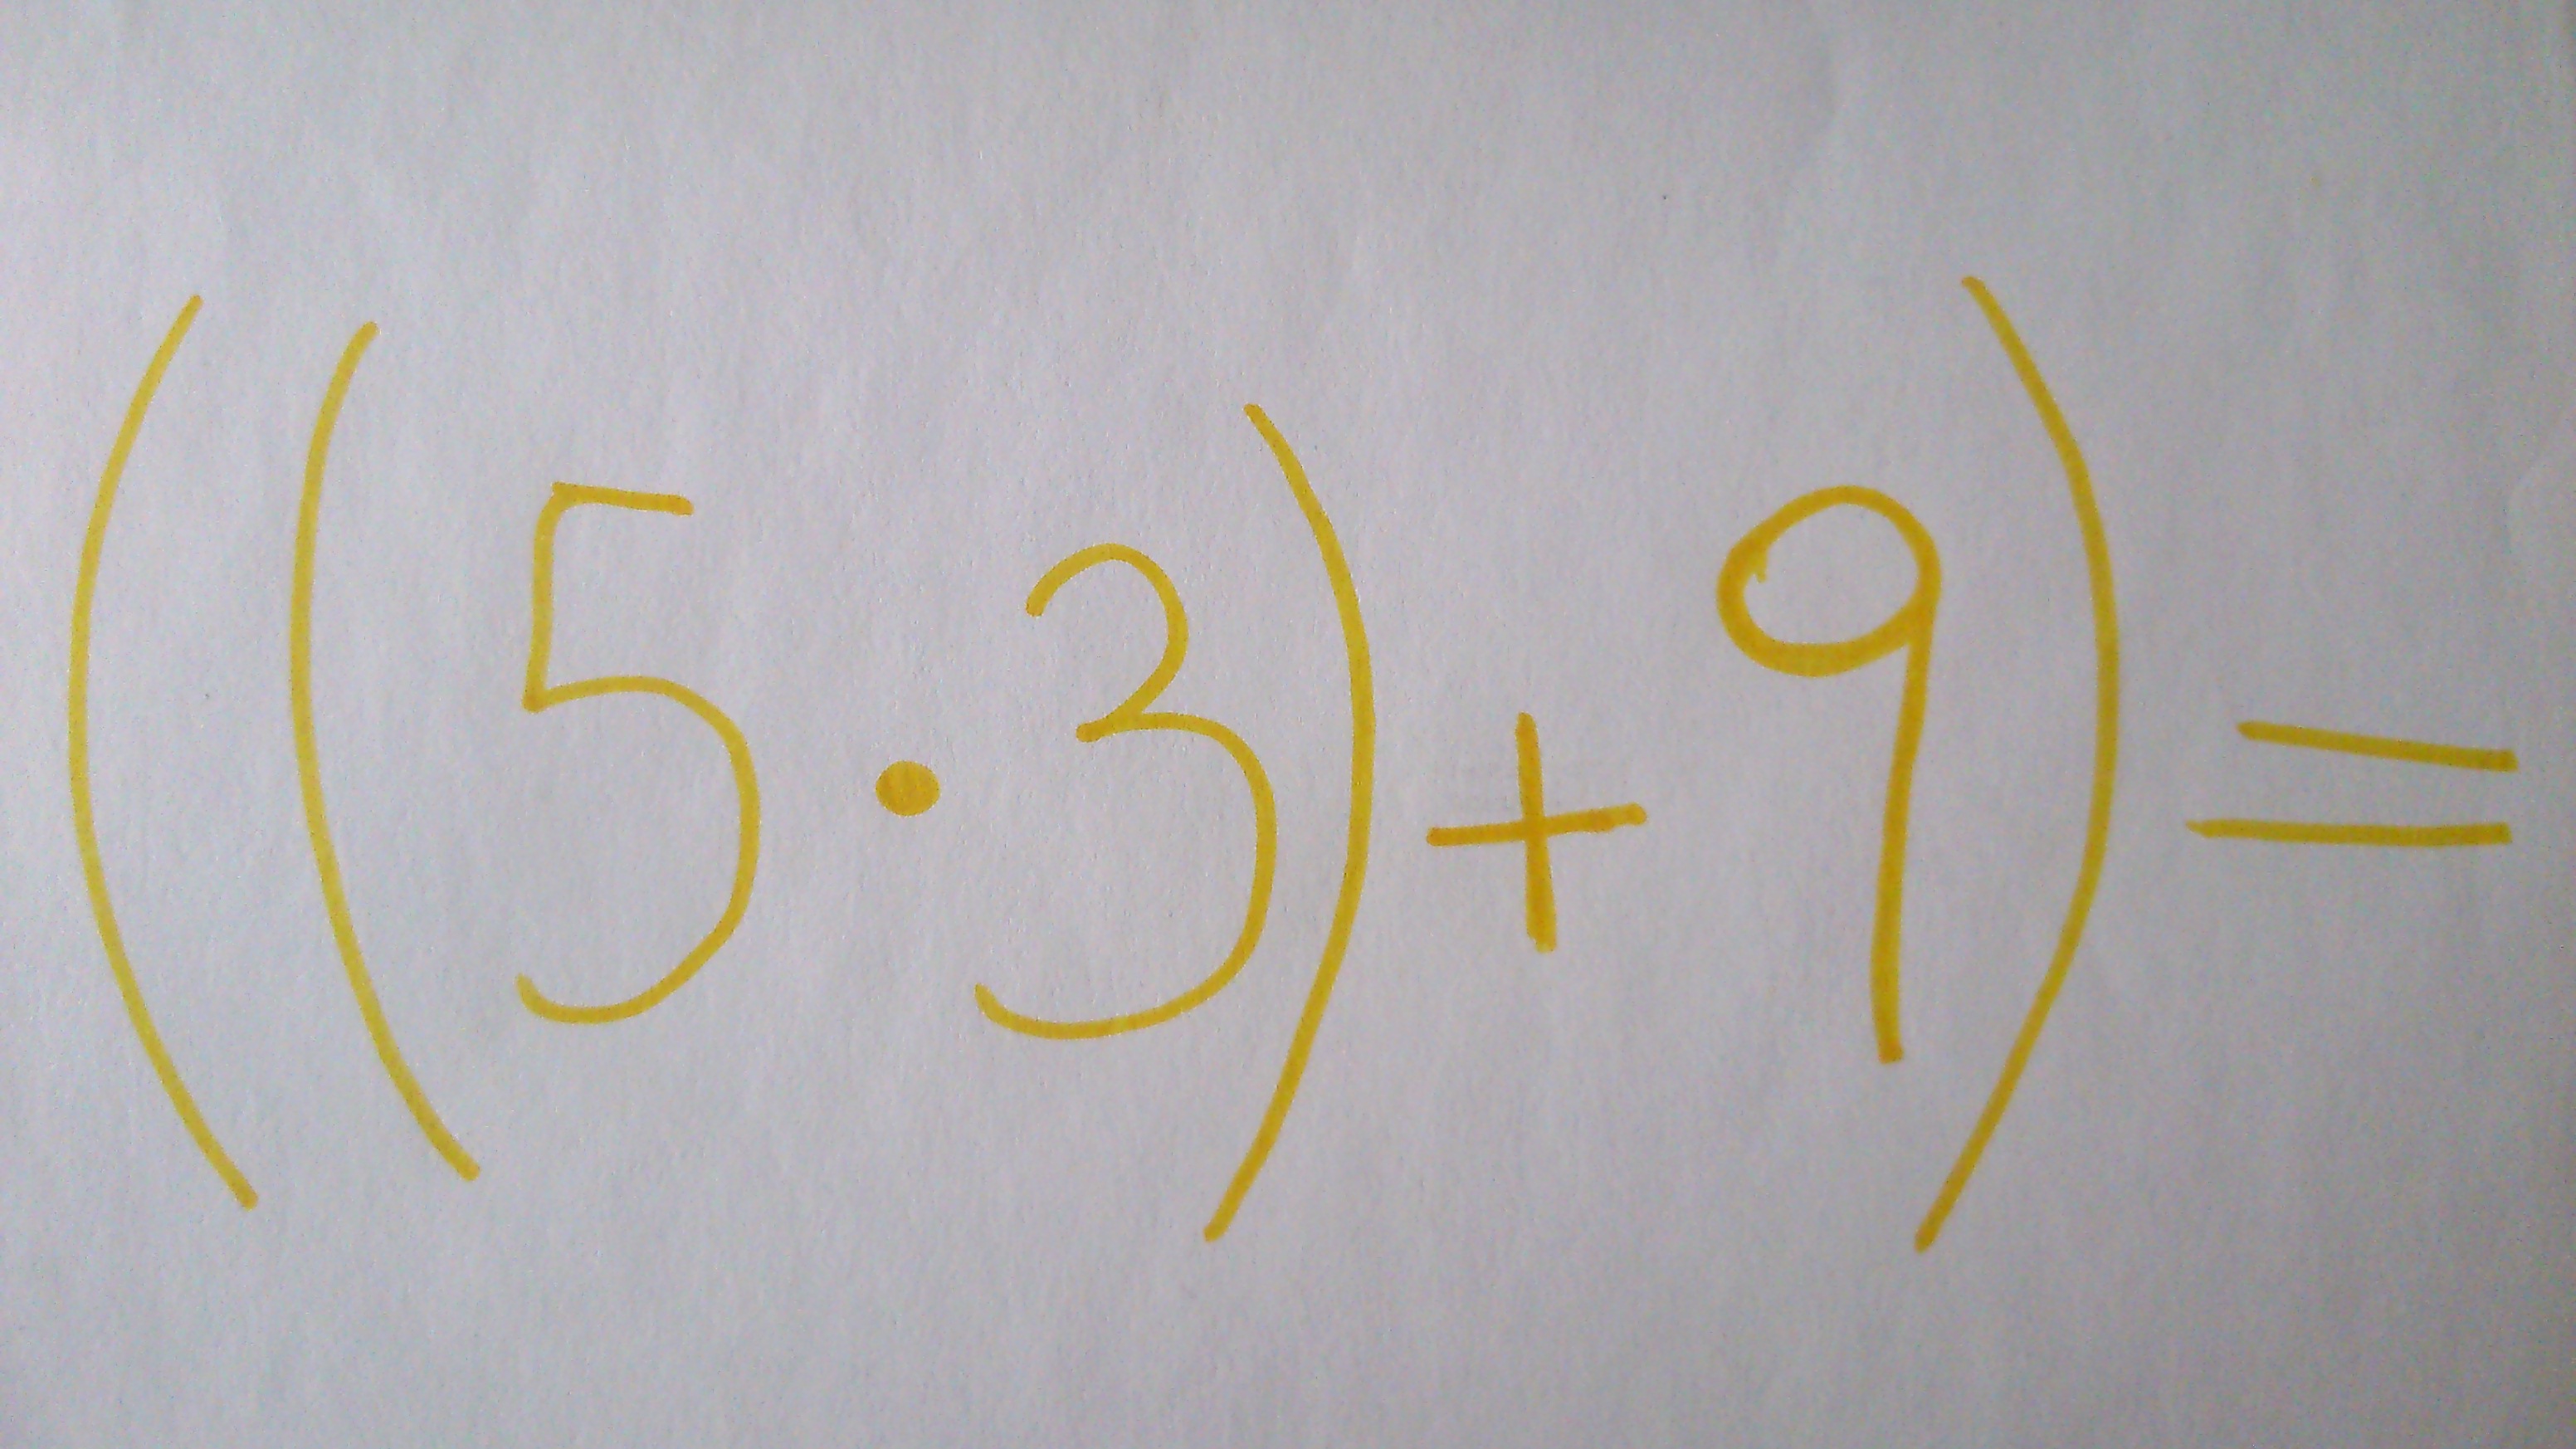 ((5·3)+9)=